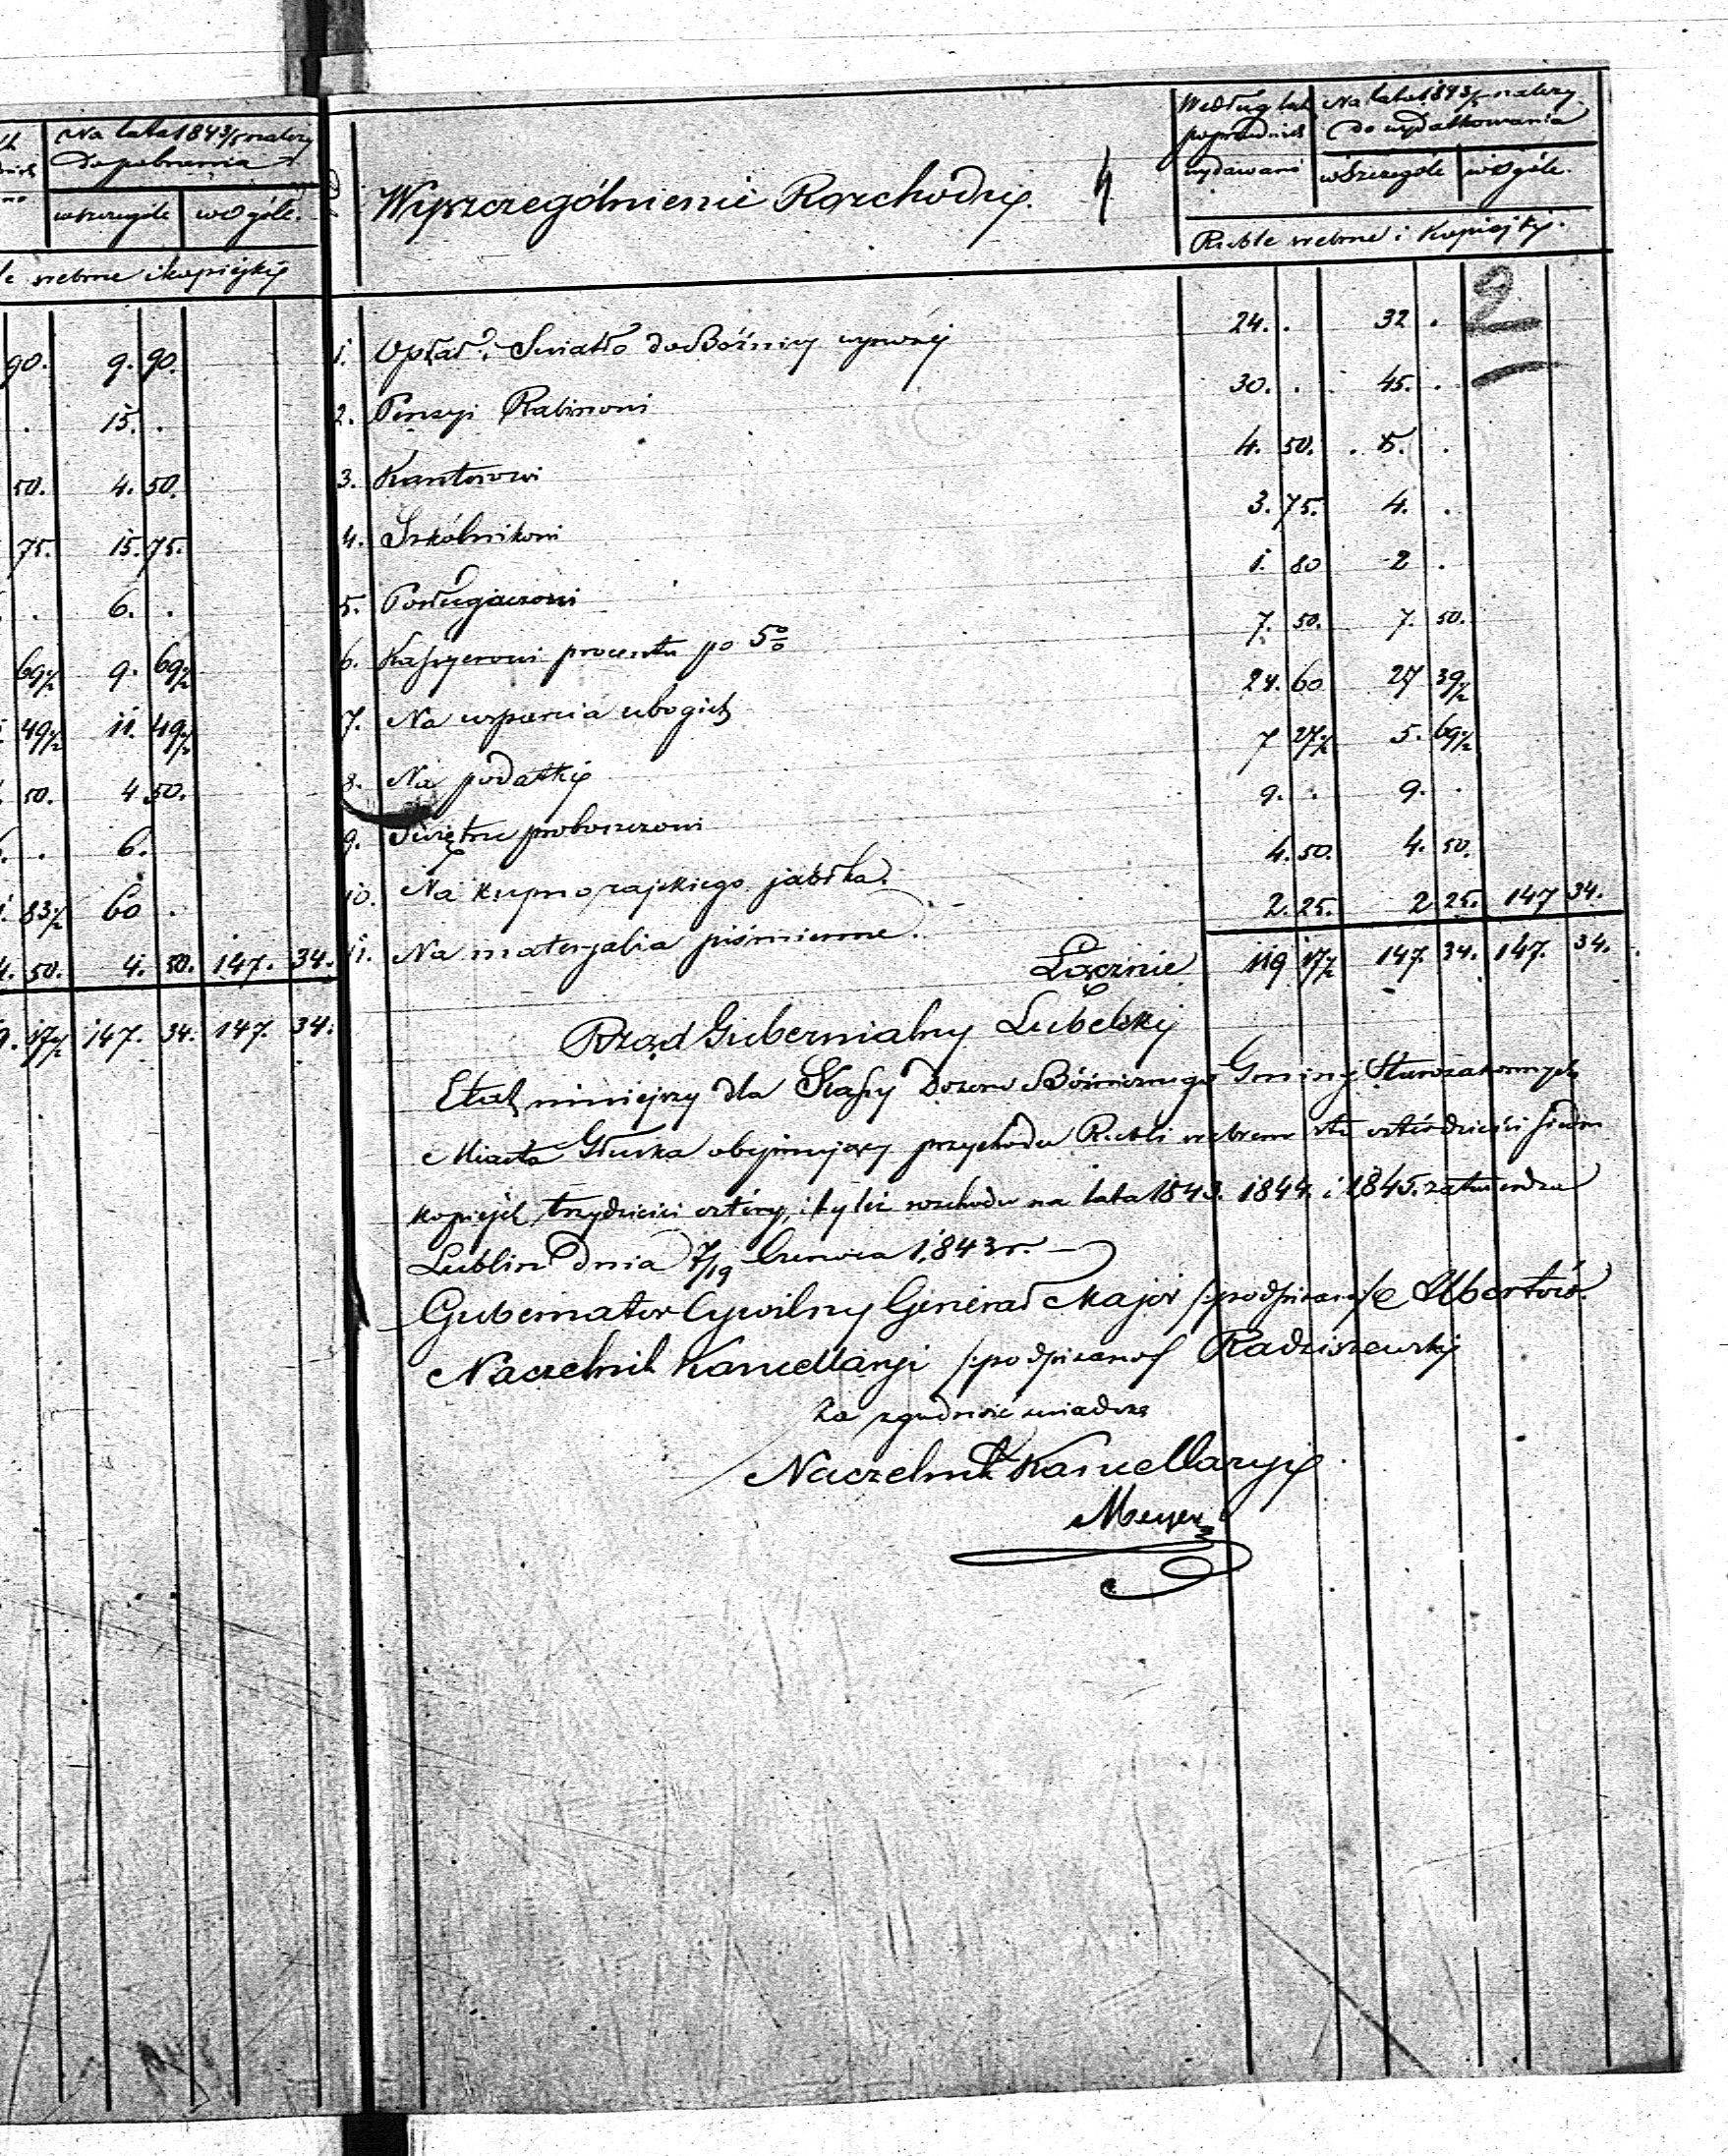 Na lata 1843/5 należy
do pobrania
w szczególe w ogóle.
srebrne i kopiejki
90. 9. 90.
. 15. .
50. 4. 50.
75. 15. 75.
. 6. .
69½ 9. 69½
49½ 11. 49½
50. 4 50.
. 6.
83½ 60 .
50. 4. 50. 147. 34.
17½ 147. 34. 147. 34.
Wyszczególnienie Rozchody.
4
Według lat
poprzednich
wydawano
Na lata 1843/5 należy
do wydatkowania
w szczególe w ogóle.
Ruble srebrne i Kopiejki.
2
1. Opał i Swiatło do Bóźnicy 24. . 32 .
2. Pensyi Rabinowi 30. . 45. .
3. Kantorowi 4. 50. 5. .
4. Szkólnikowi 3. 75. 4. .
5. Posługaczowi 1. 80 2 .
6. Kassyerowi procentu po 5% 7. 50. 7. 50.
7. Na wsparcia ubogich 24. 60 27 39½
8. Na podatki 7 27½ 5. 69½
9. proboszczowi 9. . 9. .
10. Na kupno rajskiego jabłka. 4. 50. 4. 50.
11. Na materyalia piśmienne. 2. 25. 2 25. 147 34.
Łącznie 119 17½ 147. 34. 147. 34.
Rząd Gubernialny Lubelski
Etat niniejszy dla Kassy Dozoru Bóźniczego Gminy Starozakonnych
Miasta Głuska obejmujący przychodu Rubli srebrem sto czterdzieści siedm
kopiejek trzydzieści cztery, i tyleż rozchodu na lata 1843. 1844. i 1845. zatwierdza
Lublin dnia 7/19 Czerwca 1843 r.
Gubernator Cywilny Generał Major /:podpisano/ Albertów.
Naczelnik Kancellaryi /:podpisano/ Radziszewski
Za zgodność swiadczę
Naczelnik Kancellaryi
Meyer